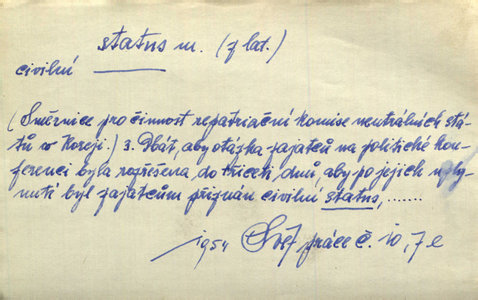 status m. (z lat.)
civilní
(Směrnice pro činnost repatriační komise neutrálních stá-
tů v Koreji.) 3. Dbát, aby otázka zajatců na politické kon-
ferenci byla rozřešena, do třiceti dnů, aby po jejich uply-
nutí byl zajatcům přiznán civilní status, .......
1954 Svět práce č. 10, 7 e